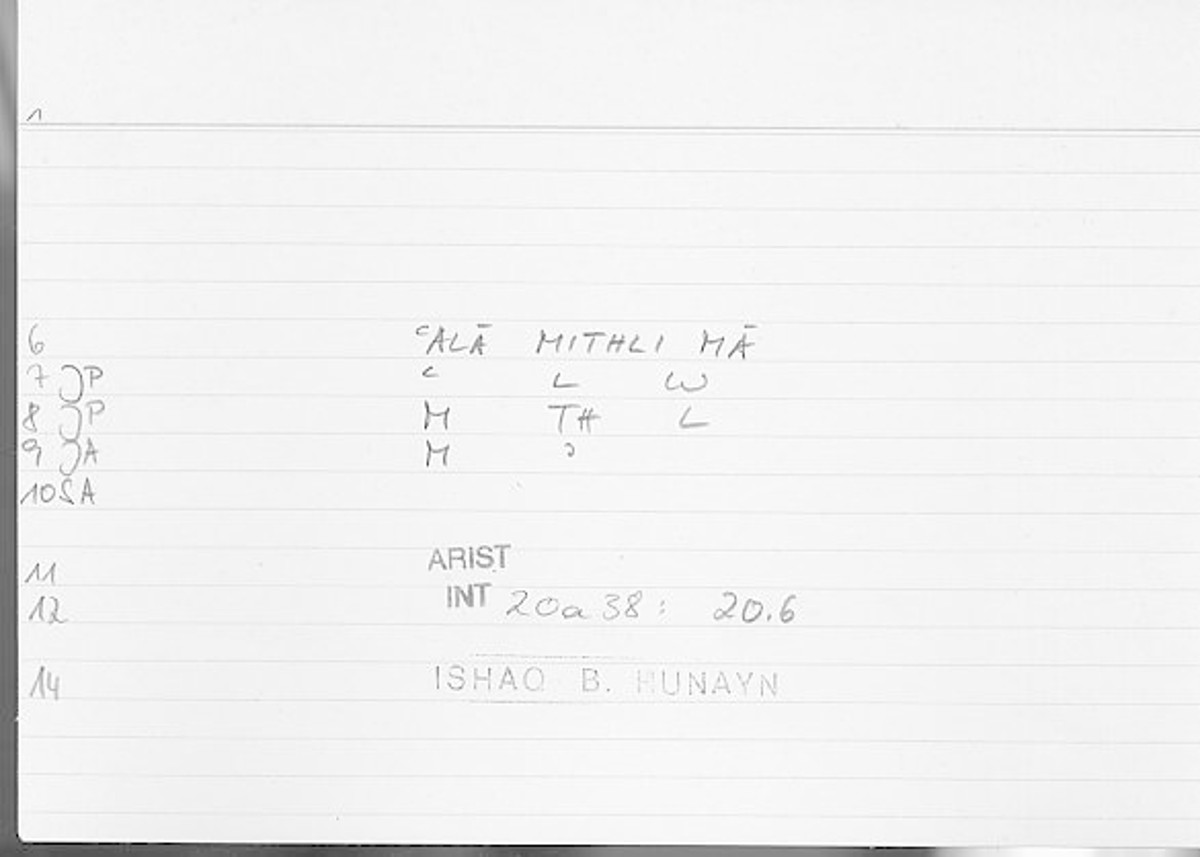 1
6 ʿALĀ MITHLI MĀ
7 JP ʿ L W
8 JP M TH L
9 JA M ʾ
10 SA
11 ARIST
12 INT 20a38: 20.6
14 ISHAQ B. HUNAYN